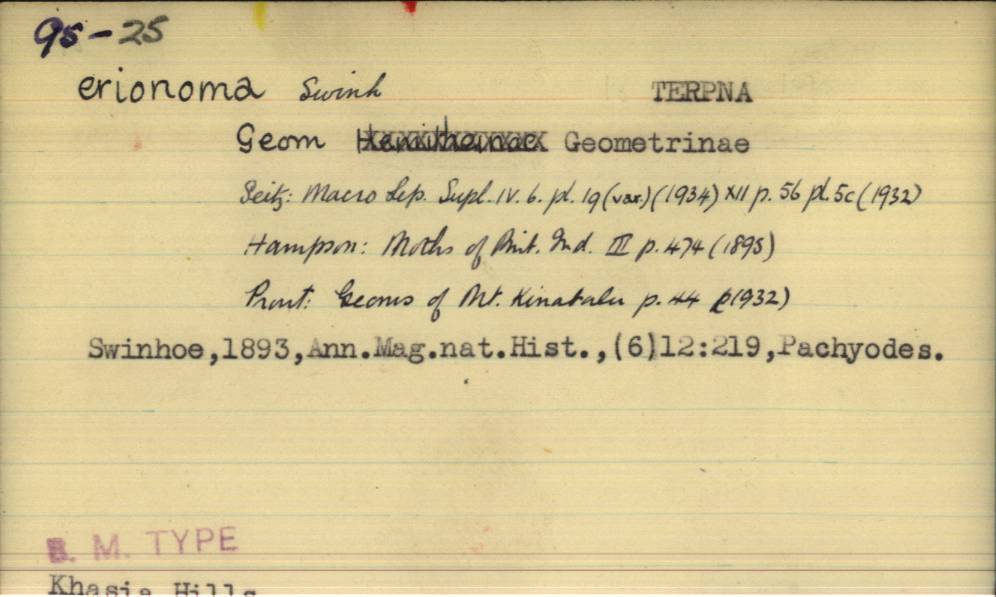 95-25
erionoma Swinh TERPNA
Geom Hemitheinae Geometrinae
Seitz: Macro Lep. Supl. IV. 6. pl. 1g (var.) (1934) XII p. 56 pl. 5c (1932)
Hampson: Moths of Brit. Ind. III p. 474 (1895)
Prout: Geoms of Mt. Kinabalu p. 44 (1932)
Swinhoe,1893,Ann.Mag.nat.Hist.,(6)12:219,Pachyodes.
B. M. TYPE
Khasia Hills